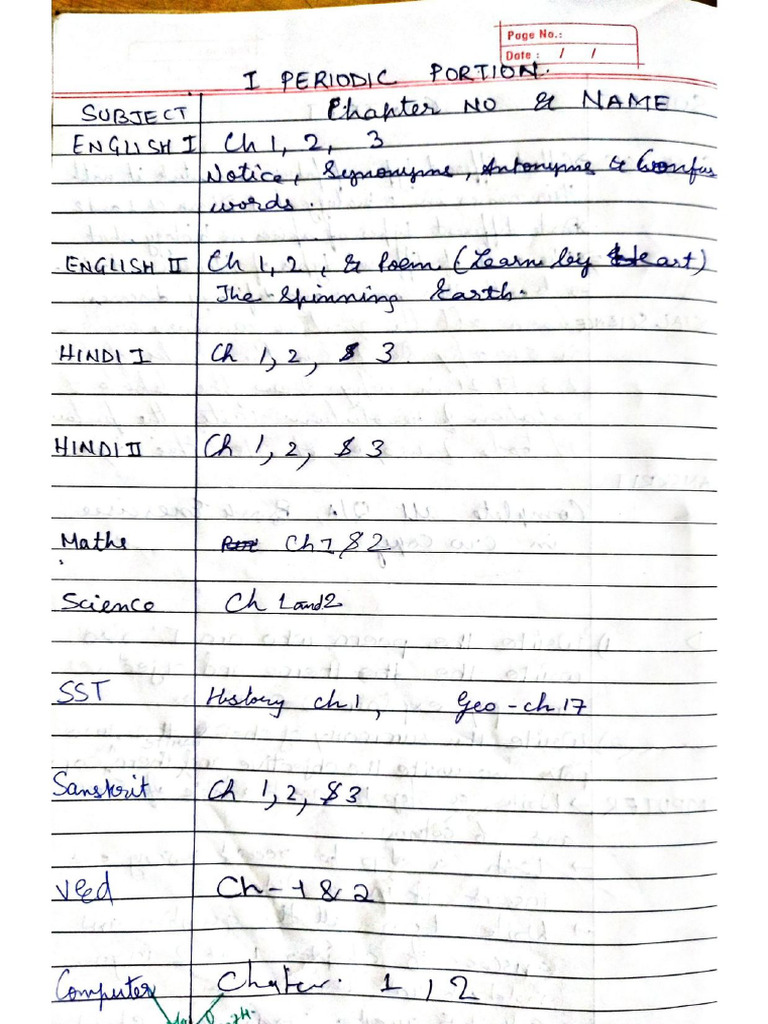 Page No.:
Date : / /
I PERIODIC PORTION.
SUBJECT Chapter NO & NAME
ENGLISH I Ch 1, 2, 3
Notice, Synonyms, Antonyms & Confus
words.
ENGLISH II Ch 1, 2, & Poem (Learn by Heart)
The Spinning Earth.
HINDI I Ch 1, 2, & 3
HINDI II Ch 1, 2, & 3
Maths Ch 1 & 2
Science Ch 1 and 2
SST History ch.1, Geo - ch.17
Sanskrit Ch 1, 2, & 3
Ved Ch - 1 & 2
Computer Chater. 1, 2